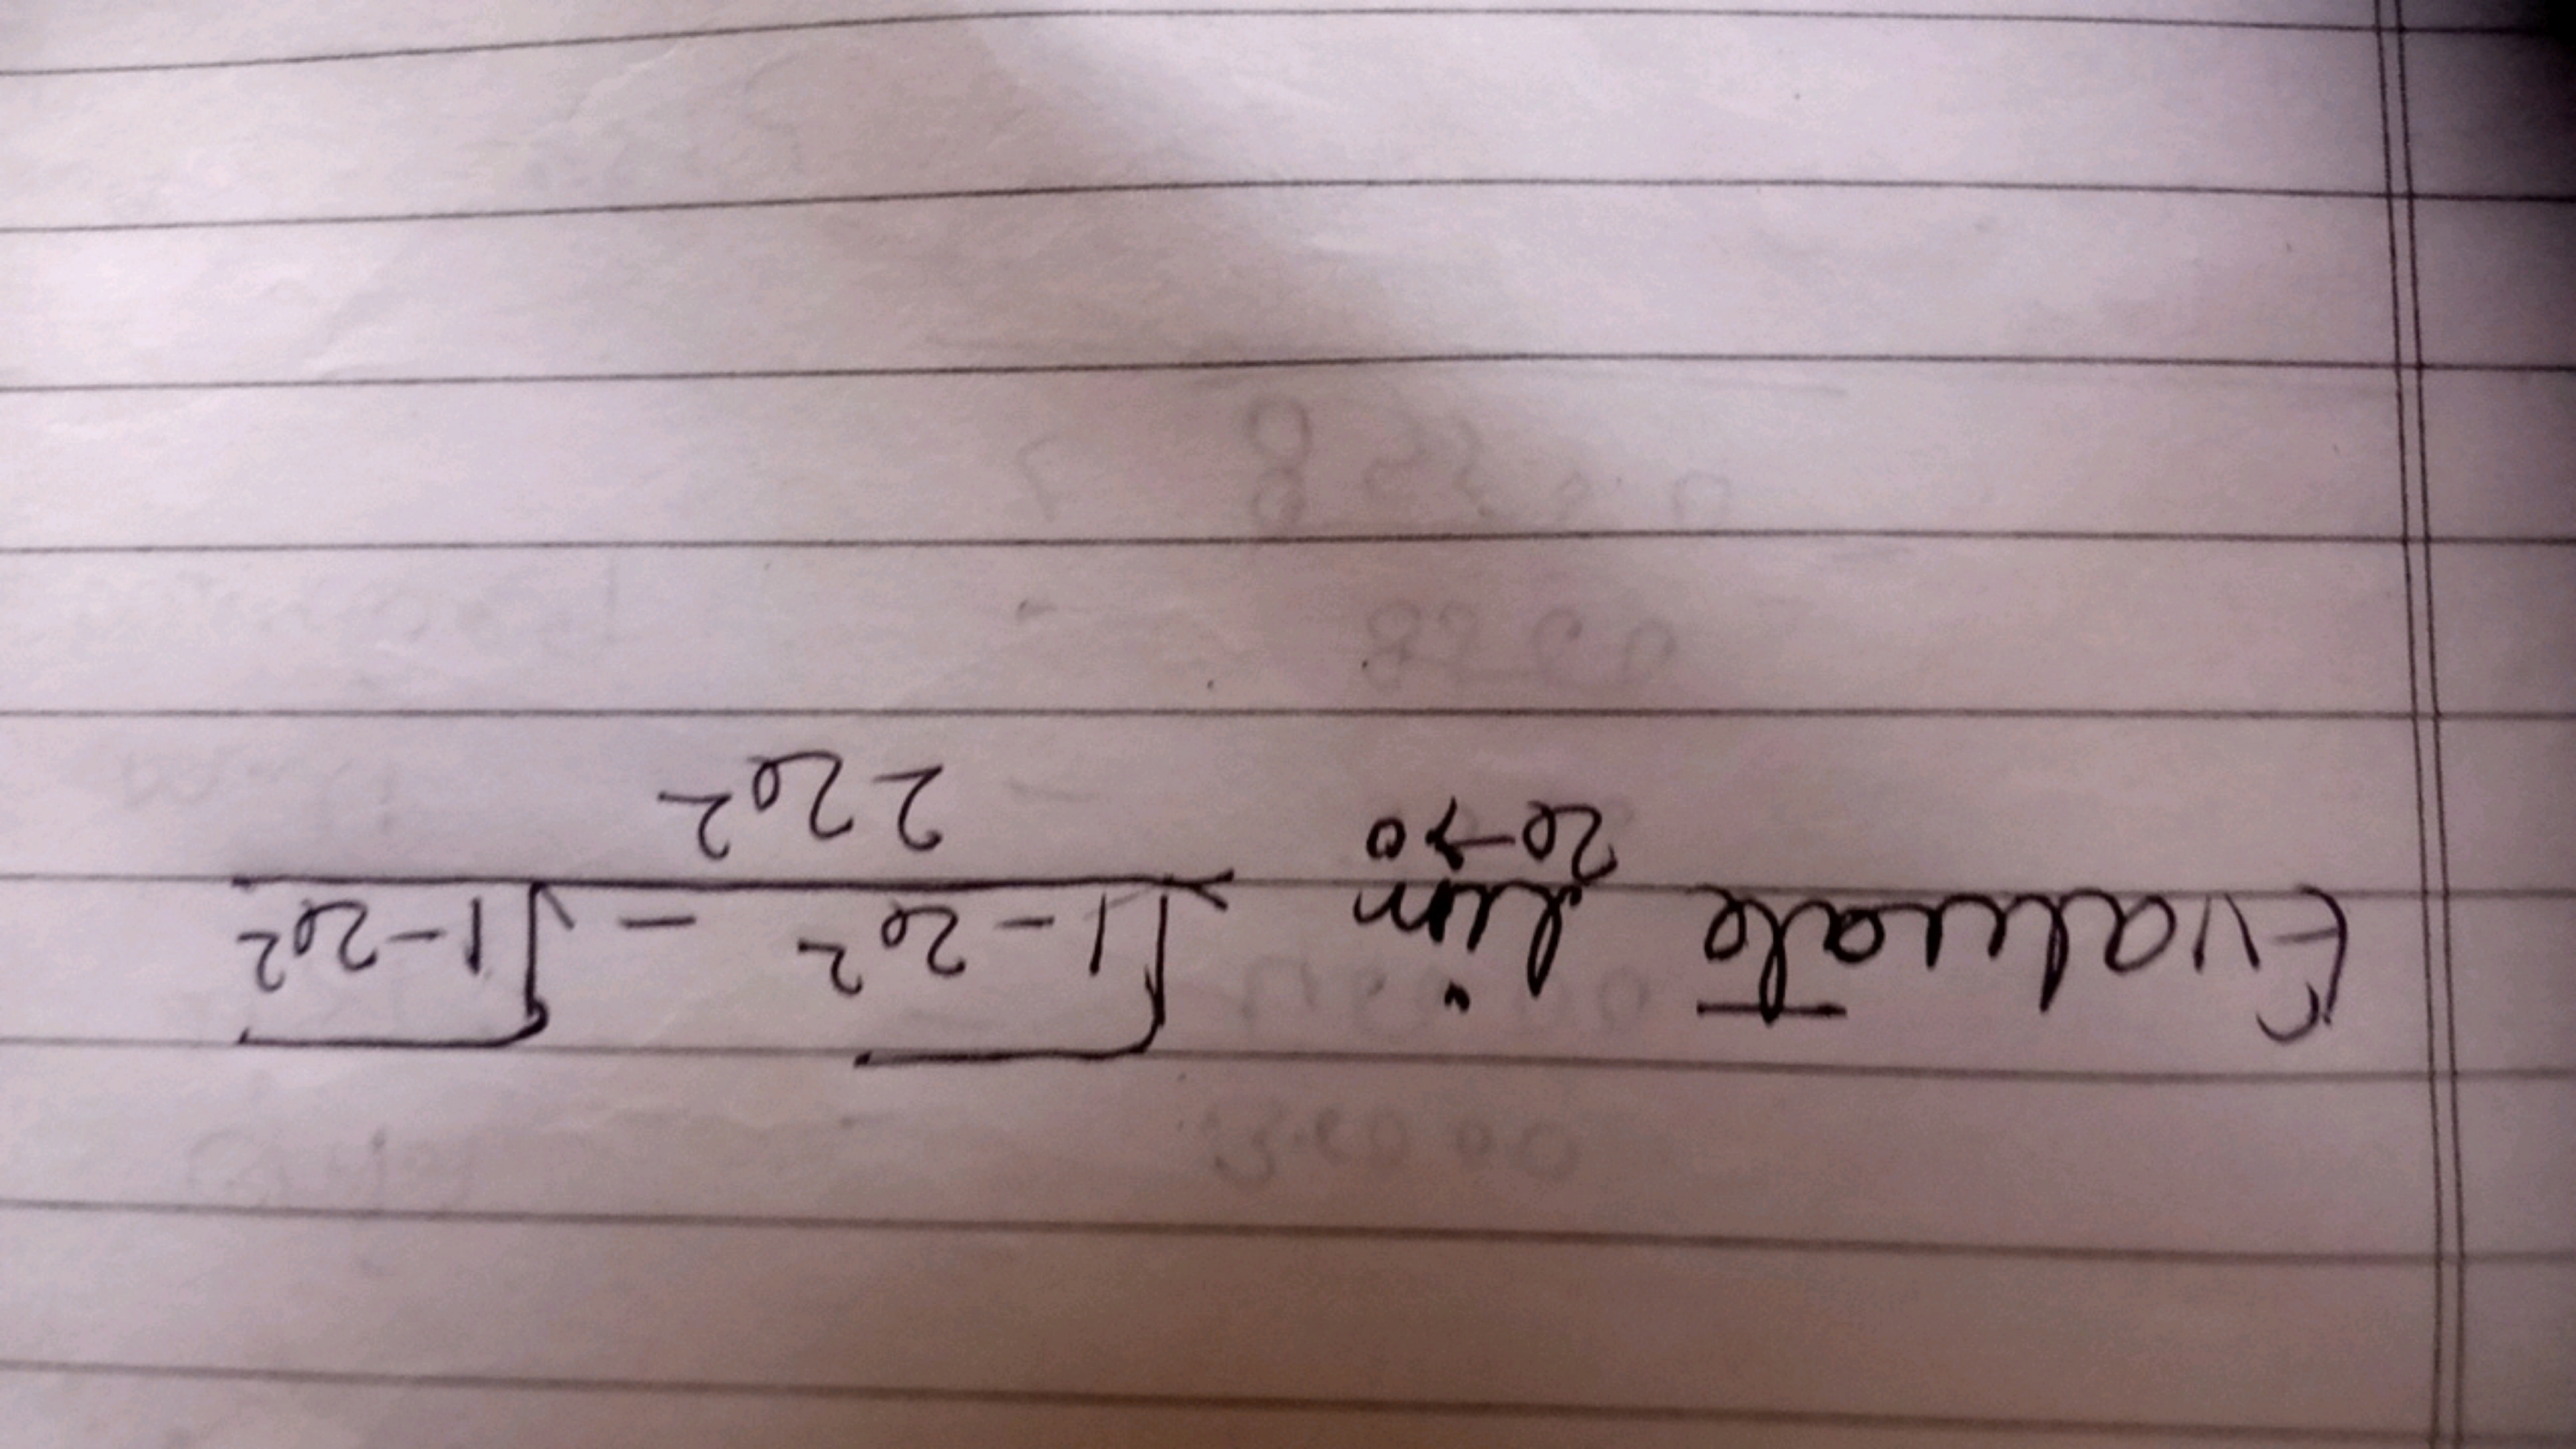 Evaluate lim x→0 (√(1-x²) - √(1-x²)) / 2x²